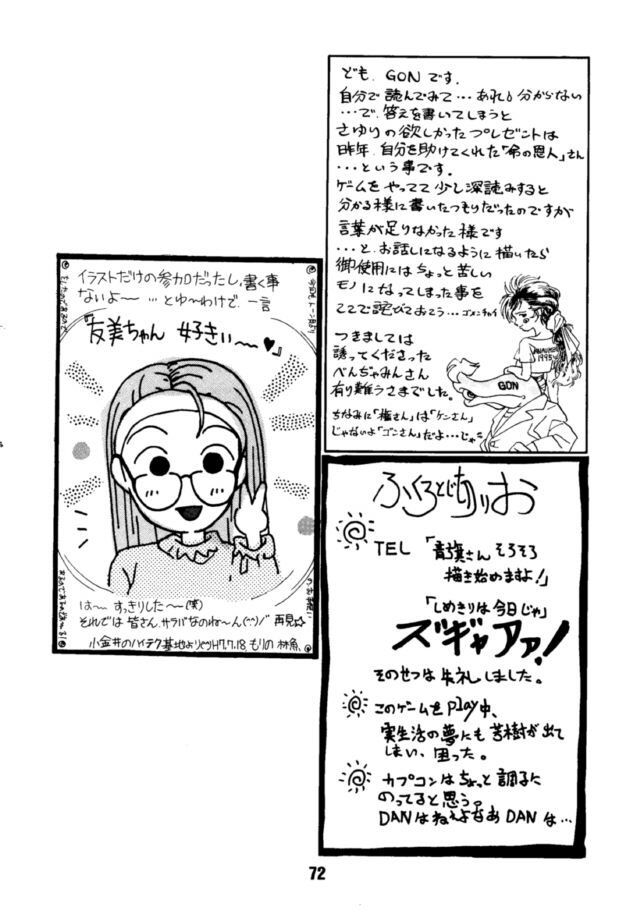 ども、GONです。
自分で読んでみて…あれ!分からない
…で、答えを書いてしまうと
さゆりの欲しかったプレゼントは
昨年、自分を助けてくれた「命の恩人」さん
…という事です。
ゲームをやってて少し深読みすると
分かる様に書いたつもりだったのですが
言葉が足りなかった様です
…と、お話しになるように描いたら
御使用にはちょっと苦しい
モノになってしまった事を
ここで詫びておこう…ゴメンチャイ
つきましては
誘ってくださった
べんぢゃみんさん
有り難うさまでした。
ちなみに「権さん」は「ケンさん」
じゃないよ「ゴンさん」だよ…じゃ
1995
GON
イラストだけの参加だったし、書く事
ないよ〜 …とゆ〜わけで、一言
『友美ちゃん 好きぃ〜〜♥』
は〜 すっきりした〜(笑)
それでは皆さん、サラバなのね〜ん(^^)/~ 再見☆
小金井のハイテク基地よりH7.7.18. もりの 林魚
TEL 「青旗さんそろそろ
描き始めますよ!」
「しめきりは今日じゃ」
ズギャアァ!
そのせつは失礼しました。
このゲームをplay中、
実生活の夢にも苦樹が出て
しまい、困った。
カプコンはちょっと調子に
のってると思う。
DANはねえよなあDANは…
72